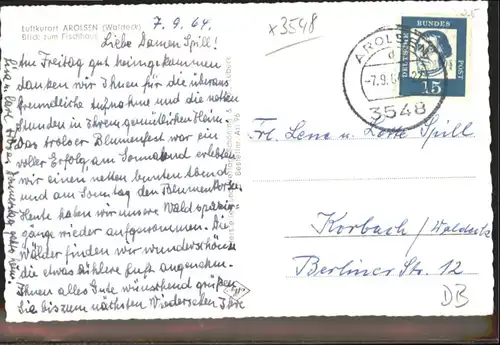 Luftkurort AROLSEN (Waldeck)
Blick zum Fischhaus
7.9.64.
x3548
Liebe Damen Spill!
Am Freitag gut heimgekommen
danken wir Ihnen für die überaus
freundliche Aufnahme und die netten
Stunden in Ihrem gemütlichen Heim.
Das Arolser Blumenfest war ein
voller Erfolg, am Sonnabend erlebten
wir einen netten bunten Abend
und am Sonntag den Blumenkorso.
Heute haben wir unsere Waldspazier-
gänge wieder aufgenommen. Die
Wälder finden wir wunderschön
die etwas kühlere Luft angenehm.
Ihnen alles Gute wünschend grüßen
Sie bis zum nächsten Wiedersehen Ihre
AROLSEN
-7.9.
3548
DEUTSCHE BUNDESPOST
15
Frl. Lena u. Lotte Spill
Korbach/Waldeck
Berliner Str. 12
DB